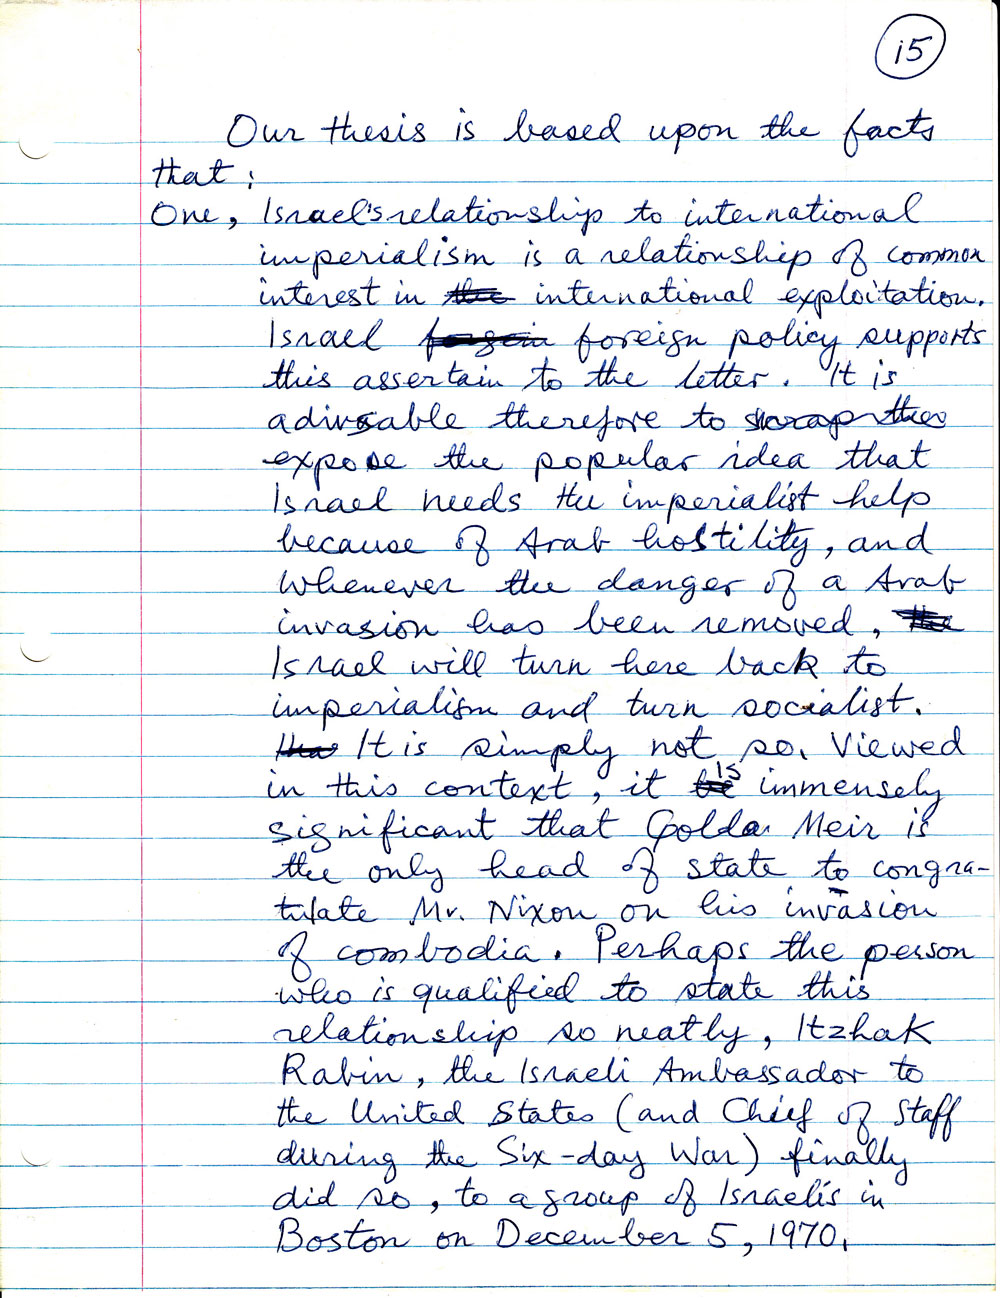 15
Our thesis is based upon the facts
that:
One, Israel's relationship to international
imperialism is a relationship of common
interest in the international exploitation.
Israel forgein foreign policy supports
this assertain to the letter. It is
adivsable therefore to scrap the
expose the popular idea that
Israel needs the imperialist help
because of Arab hostility, and
whenever the danger of a Arab
invasion has been removed, the
Israel will turn here back to
imperialism and turn socialist.
It is simply not so. Viewed
in this context, it is immensely
significant that Golda Meir is
the only head of state to congra-
tulate Mr. Nixon on his invasion
of combodia. Perhaps the person
who is qualified to state this
relationship so neatly, Itzhak
Rabin, the Israeli Ambassador to
the United States (and Chief of Staff
during the Six-day War) finally
did so, to a group of Israelis in
Boston on December 5, 1970.